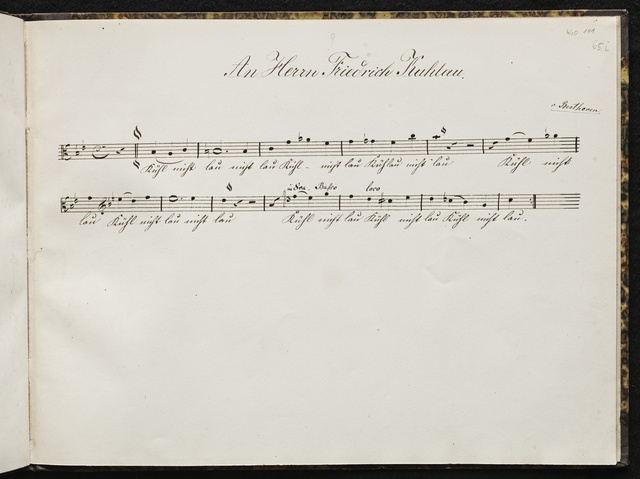 An Herrn Friedrich Kuhlau.
v. Beethoven.
Kühl nicht lau nicht lau Kühl - nicht lau Kuhlau nicht lau Kühl nicht
in 8va Basso loco
lau Kühl nicht lau nicht lau Kühl nicht lau Kühl nicht lau Kühl nicht lau.